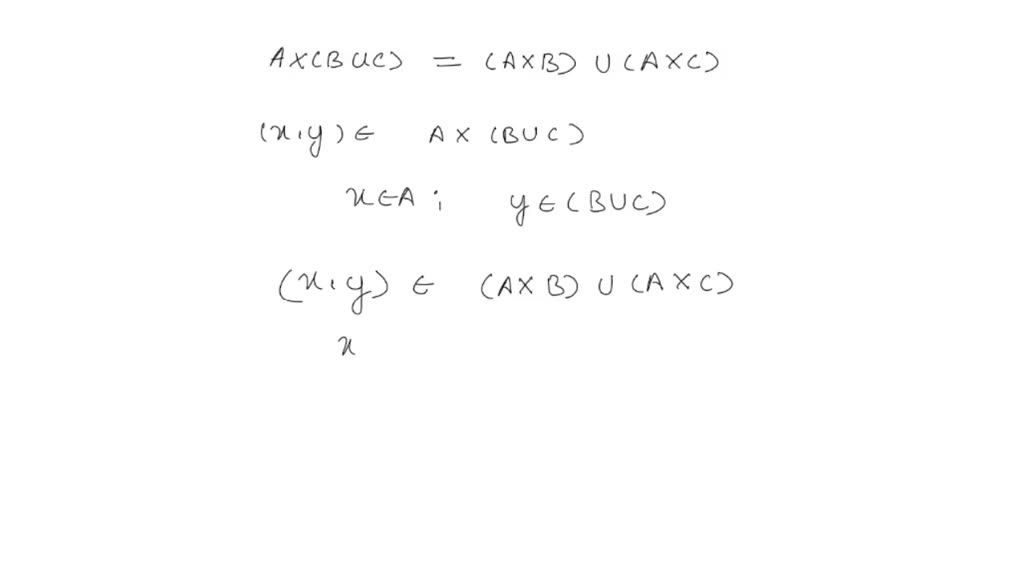 A×(B∪C) = (A×B) ∪ (A×C)
(x,y) ∈ A×(B∪C)
x∈A ; y∈(B∪C)
(x,y) ∈ (A×B) ∪ (A×C)
x